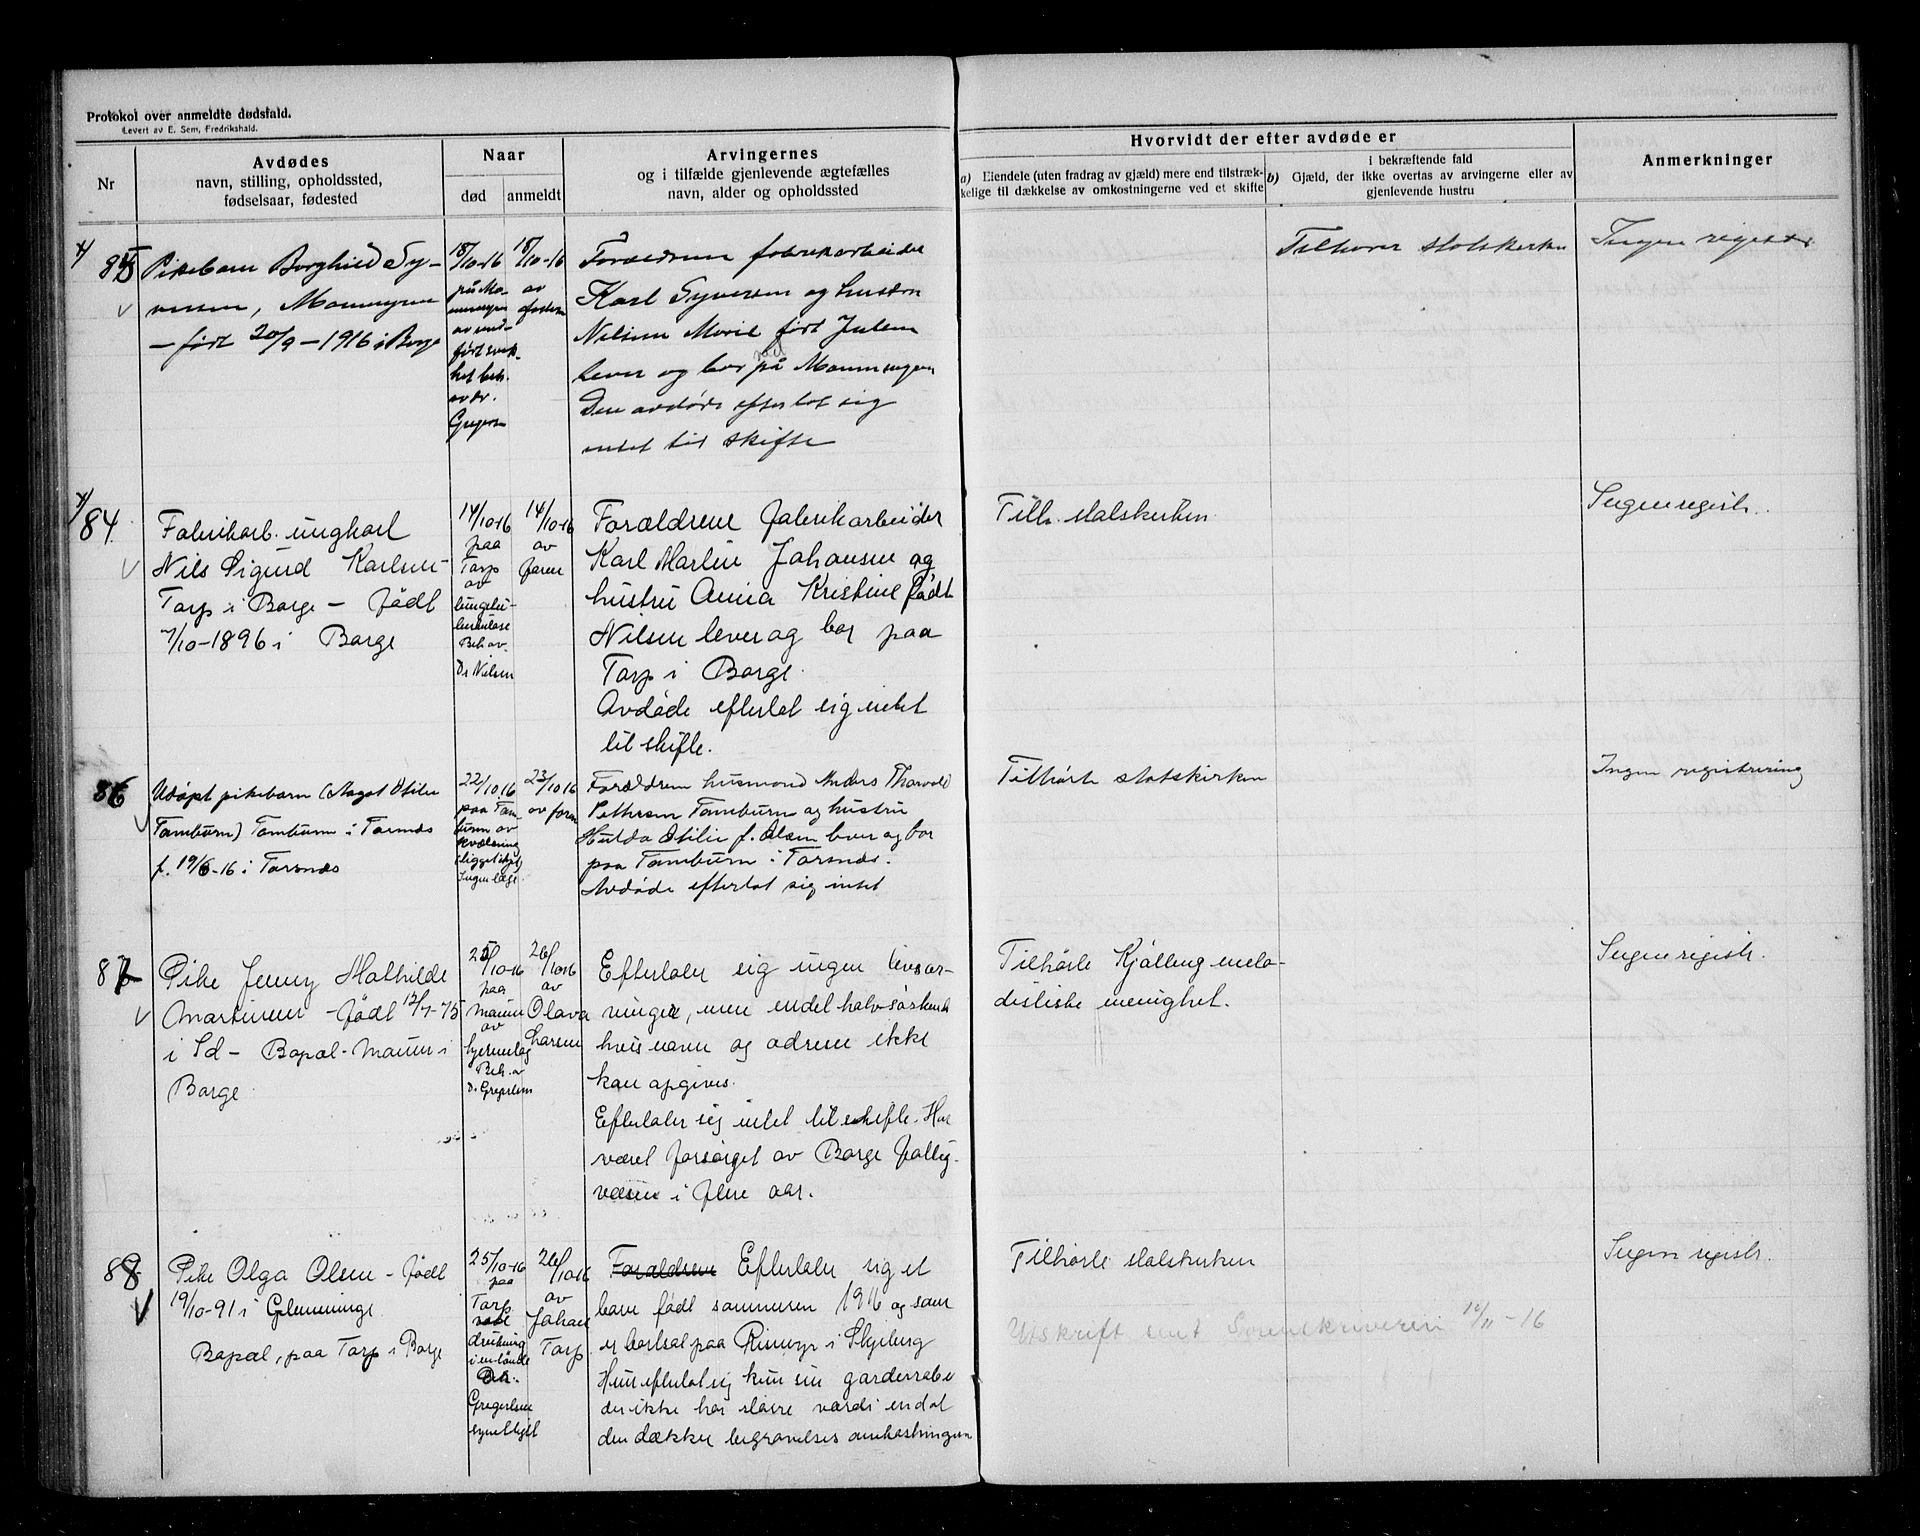 Protokol over anmeldte dødsfald.
Levert av E. Sem, Fredrikshald.
Nr
Avdødes
navn, stilling, opholdssted,
fødselsaar, fødested
Naar
død
anmeldt
Arvingernes
og i tilfælde gjenlevende ægtefælles
navn, alder og opholdssted
Hvorvidt der efter avdøde er
a) Eiendele (uten fradrag av gjæld) mere end tilstræk-
kelige til dækkelse av omkostningerne ved et skifte
i bekræftende fald
b) Gjæld, der ikke overtas av arvingerne eller av
gjenlevende hustru
Anmerkninger
85
Pikebarn Borghild Sy-
versen,
- født 20/9 - 1916 i Borge
18/10-16
av
Gregersen
18/10-16
av
faderen
Forældrene fabrikarbeider
Karl Syversen og hustru
Nilsine Marie født Julsen
lever og bor på
Den avdøde efterlot sig
intet til skifte
Tilhører statskirken
Ingen registr
84.
Fabrikarb. ungkarl
Nils Sigurd Karlsen -
Tarp i Borge - født
7/10-1896 i Borge
14/10-16
paa
Tarp
av
lungetu-
berkulose
Beh. av
Dr Nilsen
14/10-16
av
faren
Forældrene fabrikarbeider
Karl Martin Johansen og
hustru Anna Kristine født
Nilsen lever og bor paa
Tarp i Borge.
Avdøde efterlot sig intet
til skifte.
Tilh. statskirken
Ingen registr.
86
Udøpt pikebarn (Aagot Otilie
Tamburn) Tamburn i Torsnæs
f. 19/6-16 i Torsnæs
22/10-16
paa Tam-
burn av
kvælning
(ligget ihjel)
Ingen læge
23/10-16
av faren
Forældrene husmand Anders Thorvald
Pettersen Tamburn og hustru
Hulda Otilie f. Olsen lever og bor
paa Tamburn i Torsnæs.
Avdøde efterlot sig intet
Tilhørte statskirken
Ingen registrering
87
Pike Jenny Mathilde
Martinsen - født 12/7-75
i Id - Bopæl - Maum i
Borge
25/10-16
paa
Maum
av
hjerneslag
Beh. av
Dr Gregersen
26/10-16
av
Olava
Larsen
Efterlater sig ingen livsar-
vinger, men endel halvsøskende
hvis navn og adresse ikke
kan opgives.
Efterlater sig intet til skifte. Har
været forsørget av Borge fattig-
væsen i flere aar.
Tilhørte Kjølberg meto-
distiske menighet.
Ingen registr.
88
Pike Olga Olsen - født
19/10-91 i Glemminge
Bopæl, paa Tarp i Borge
25/10-16
paa
Tarp
drukning
i en brønd
Gregersen
26/10-16
av
Johan
Tarp
Forældrene Efterlater sig et
barn født sommeren 1916 og som
er bortsat paa Rismyr i Skjeberg
Hun efterlot sig kun sin garderobe
der ikke har større værdi end at
den dækker begravelses omkostningerne
Tilhørte statskirken
Utskrift sent Sorenskriveren 10/11-16
Ingen registr.